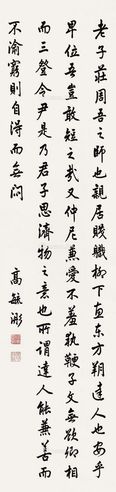 老子莊周吾之師也親居賤職柳下惠東方朔達人也安乎
卑位吾豈敢短之哉又仲尼兼愛不羞執鞭子文無欲卿相
而三登令尹是乃君子思濟物之意也所謂達人能兼善而
不渝窮則自得而無悶
高毓浵